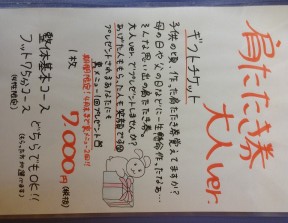 肩たたき券
大人ver.
ギフトチケット
子供の頃、作った肩たたき券覚えてますか?
母の日や父の日などに一生懸命作ったなぁ…
そんな思い出の肩たたき券。
大人ver.でプレゼントしませんか?
あげた人ももらった人も笑顔で
プレゼントされたあなたにも
1枚 7,000円(税抜)
整体基本コース
フット75分コース
どちらでもOK!!